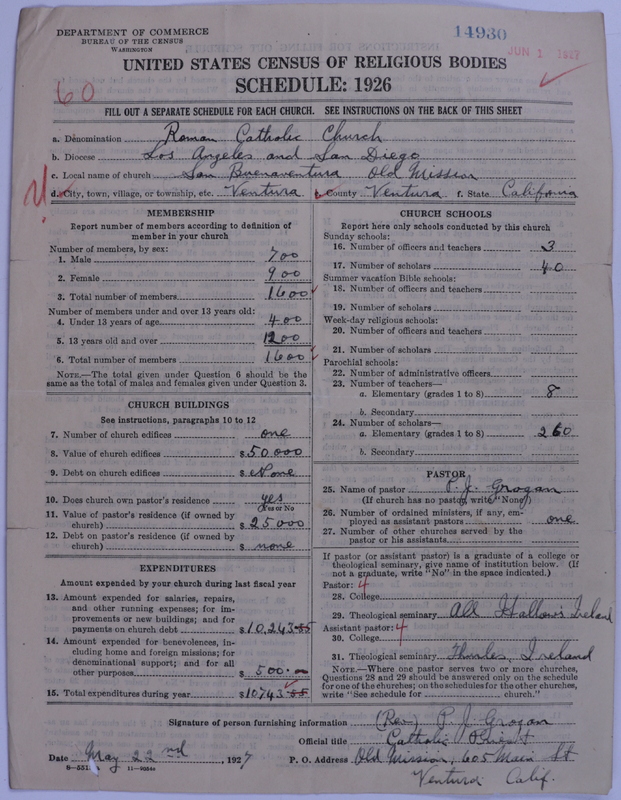 DEPARTMENT OF COMMERCE
BUREAU OF THE CENSUS
WASHINGTON
14930
JUN 1 1927
UNITED STATES CENSUS OF RELIGIOUS BODIES
SCHEDULE: 1926
60
FILL OUT A SEPARATE SCHEDULE FOR EACH CHURCH. SEE INSTRUCTIONS ON THE BACK OF THIS SHEET
a. Denomination Roman Catholic Church
b. Diocese Los Angeles and San Diego
c. Local name of church San Buenaventura Old Mission
d. City, town, village, or township, etc. Ventura e. County Ventura f. State California
MEMBERSHIP
Report number of members according to definition of
member in your church
Number of members, by sex:
1. Male 700
2. Female 900
3. Total number of members 1600
Number of members under and over 13 years old:
4. Under 13 years of age 400
5. 13 years old and over 1200
6. Total number of members 1600
NOTE.—The total given under Question 6 should be
same as the total of males and females given under Question 3.
CHURCH BUILDINGS
See instructions, paragraphs 10 to 12
7. Number of church edifices one
8. Value of church edifices $50,000
9. Debt on church edifices $ None
10. Does church own pastor's residence yes
Yes or No
11. Value of pastor's residence (if owned by
church) $25000
12. Debt on pastor's residence (if owned by
church) $ none
EXPENDITURES
Amount expended by your church during last fiscal year
13. Amount expended for salaries, repairs,
and other running expenses; for im-
provements or new buildings; and for
payments on church debt $10,243.55
14. Amount expended for benevolences, in-
cluding home and foreign missions; for
denominational support; and for all
other purposes $500.—
15. Total expenditures during year $10743.55
CHURCH SCHOOLS
Report here only schools conducted by this church
Sunday schools:
16. Number of officers and teachers 3
17. Number of scholars 40
Summer vacation Bible schools:
18. Number of officers and teachers
19. Number of scholars
Week-day religious schools:
20. Number of officers and teachers
21. Number of scholars
Parochial schools:
22. Number of administrative officers
23. Number of teachers—
a. Elementary (grades 1 to 8) 8
b. Secondary
24. Number of scholars—
a. Elementary (grades 1 to 8) 260
b. Secondary
PASTOR
25. Name of pastor P. J. Grogan
(If church has no pastor, write "None")
26. Number of ordained ministers, if any, em-
ployed as assistant pastors one
27. Number of other churches served by the
pastor or his assistants
If pastor (or assistant pastor) is a graduate of a college or
theological seminary, give name of institution below. (If
not a graduate, write "No" in the space indicated.)
Pastor: 4
28. College
29. Theological seminary All Hallows Ireland
Assistant pastor: 4
30. College
31. Theological seminary Thurles, Ireland
NOTE.—Where one pastor serves two or more churches,
Questions 28 and 29 should be answered only on the schedule
for one of the churches; on the schedules for the other churches,
write "See schedule for church."
Signature of person furnishing information (Rev) P. J. Grogan
Official title Catholic Priest
Date May 22nd, 1927 P. O. Address Old Mission, 605 Main St
Ventura Calif.